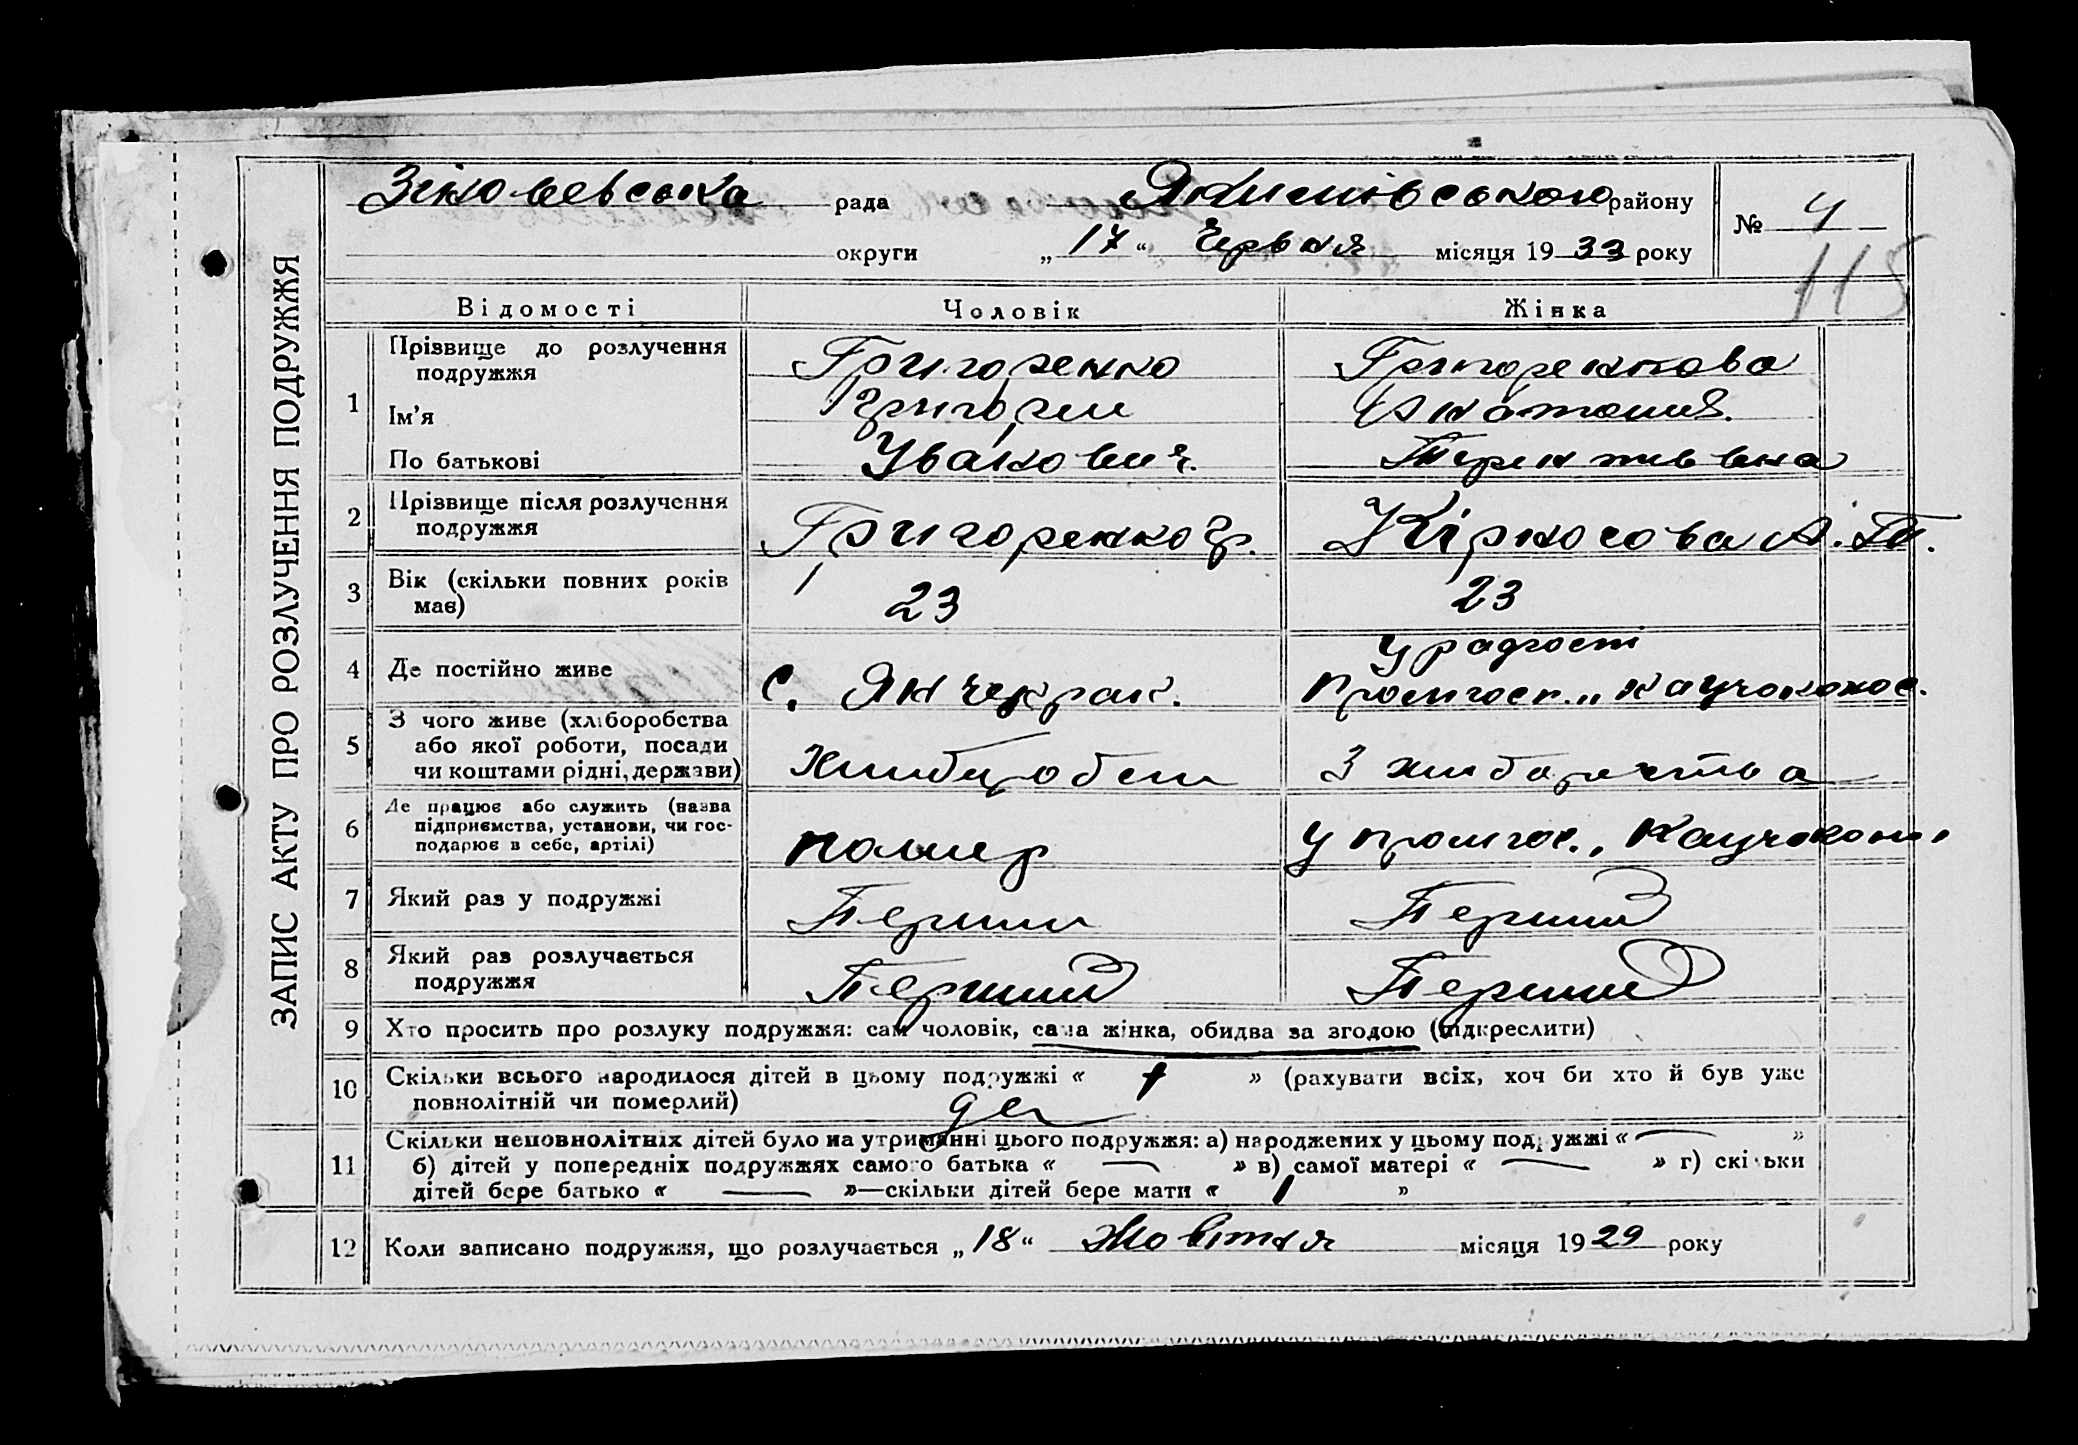 ЗАПИС АКТУ ПРО РОЗЛУЧЕННЯ ПОДРУЖЖЯ
Зіновьевська рада Якимівського району № 4
округи „17“ Червня місяця 1933 року
115
Відомості Чоловік Жінка
1 Прізвище до розлучення подружжя Григоренко Григоренкова
Ім’я Григорий Анатолия
По батькові Иванович Терентивна
2 Прізвище після розлучення подружжя Григоренко Гр. Кірносова А. Т.
3 Вік (скільки повних років має) 23 23
4 Де постійно живе с. Янчекрак. У радгоспі
Промгосп. „Каучоконос.
5 З чого живе (хліборобства
або якої роботи, посади
чи коштами рідні, держави) З хліборобства
6 Де працює або служить (назва
підприємства, установи, чи гос-
подарює в себе, артілі) У промгос. „Каучокон“
7 Який раз у подружжі Перши Перший
8 Який раз розлучається подружжя Перший Перший
9 Хто просить про розлуку подружжя: сам чоловік, сама жінка, обидва за згодою (підкреслити)
10 Скільки всього народилося дітей в цьому подружжі « 1 » (рахувати всіх, хоч би хто й був уже
повнолітній чи померлий)
11 Скільки неповнолітніх дітей було на утриманні цього подружжя: а) народжених у цьому подружжі « — »
б) дітей у попередніх подружжях самого батька « — » в) самої матері « — » г) скільки
дітей бере батько « — »—скільки дітей бере мати « 1 »
12 Коли записано подружжя, що розлучається „18“ Жовтня місяця 1929 року